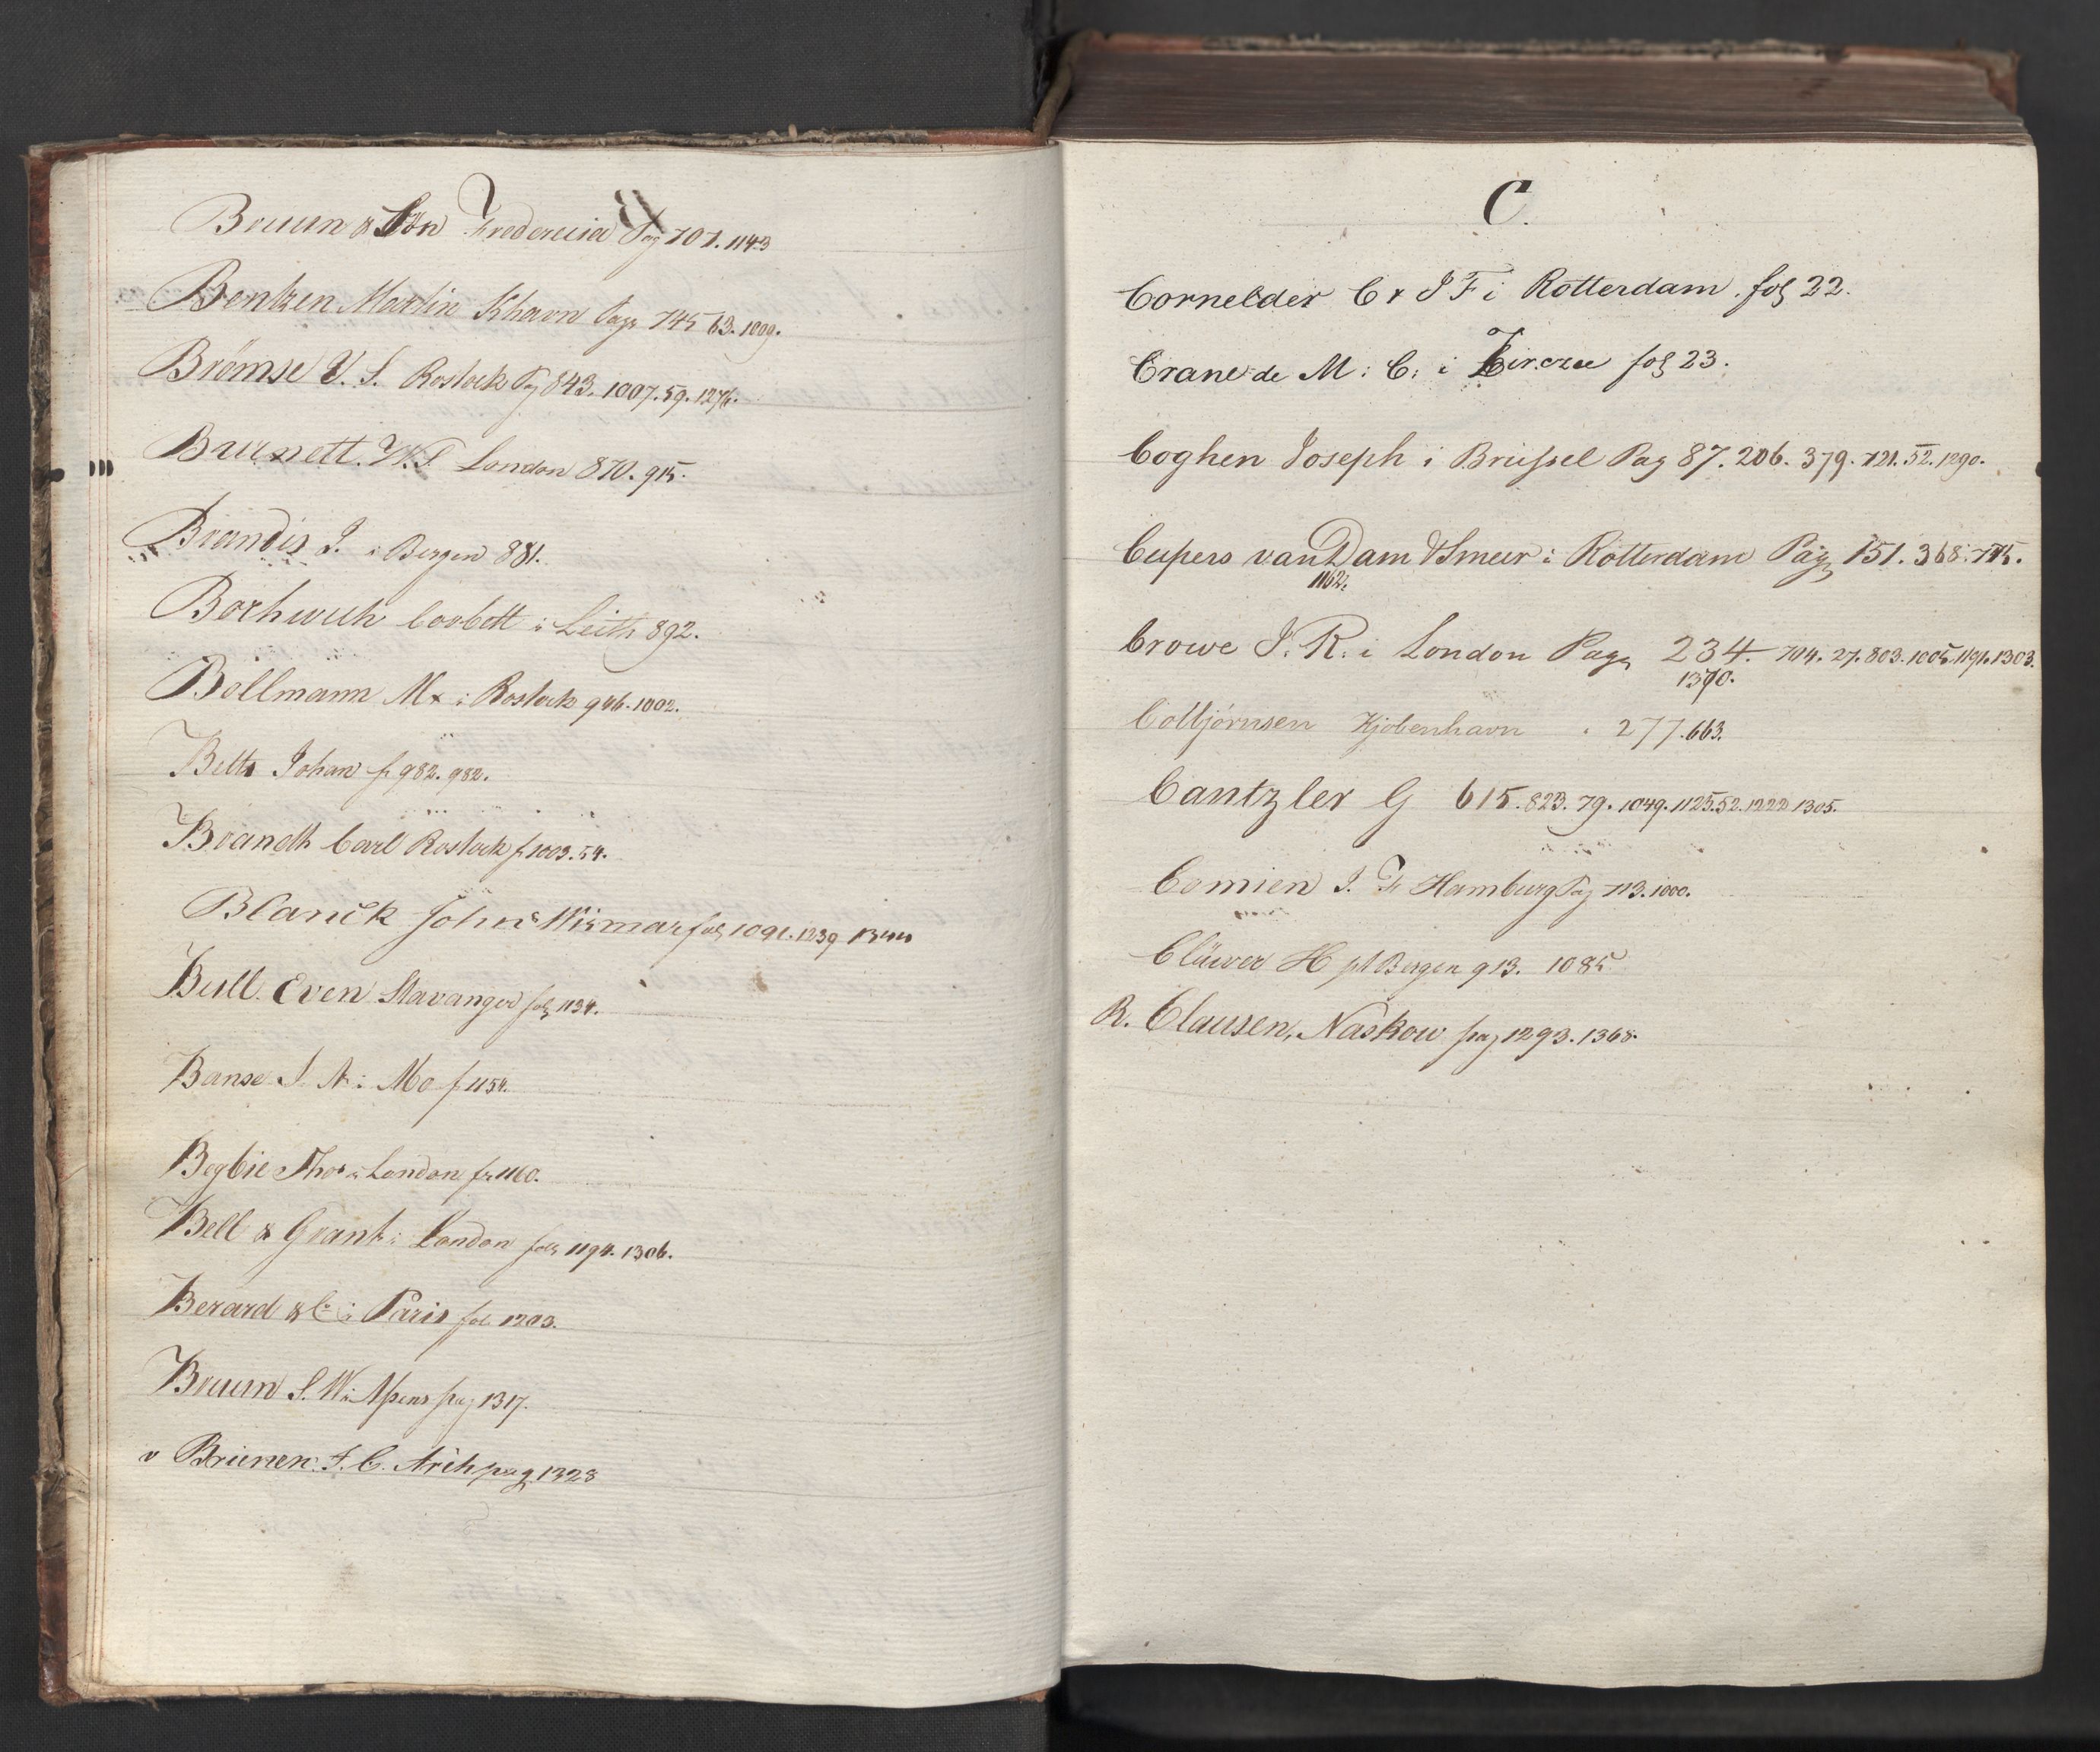 B
Bruun & Sön Fredericia Pag 707. 1143
Bentzen Martin Khavn Pag 745 63. 1009.
Brömse V. S. Rostock Pag 843. 1007. 59. 1276.
Burnett. W. S. London 870. 915.
Brandis J. i Bergen 881.
Borhwich Corbett i Leith 892.
Bollmann Mx i Rostock 946. 1002.
Betts Johan f 982. 982.
Brandth Carl Rostock f 1003. 54.
Blanck John Wismar fol 1091. 1239 1344
Bull. Even Stavanger fol 1134.
Banse J. N. i Mo f 1154.
Begbie Thos i London f. 1160.
Bell & Grant i London fol 1194. 1306.
Berard & C i Paris fol 1203.
Bruun S. W. i Apens pag 1317.
v Brienen. F. C. Arch pag. 1328
C.
Cornelder C & J F i Rotterdam. fol 22.
Crane de M: C: i Zirczee fol 23.
Coghen Joseph i Brüssel Pag 87. 206. 379. 721. 52. 1290.
Cupers van Dam & Smeer i Rotterdam Pag 151. 368. 775.
1162.
Crowe J. R. i London Pag 234. 704. 27. 803. 1005. 1191. 1303.
1370.
Colbjörnsen Kjöbenhavn . 277. 663.
Cantzler G 615. 823. 79. 1049. 1125. 52. 1222 1305.
Comien J. F. Hamburg Pag 713. 1000.
Clüwer H pt Bergen 913. 1085
R. Clausen, Naskow pag 1293. 1368.